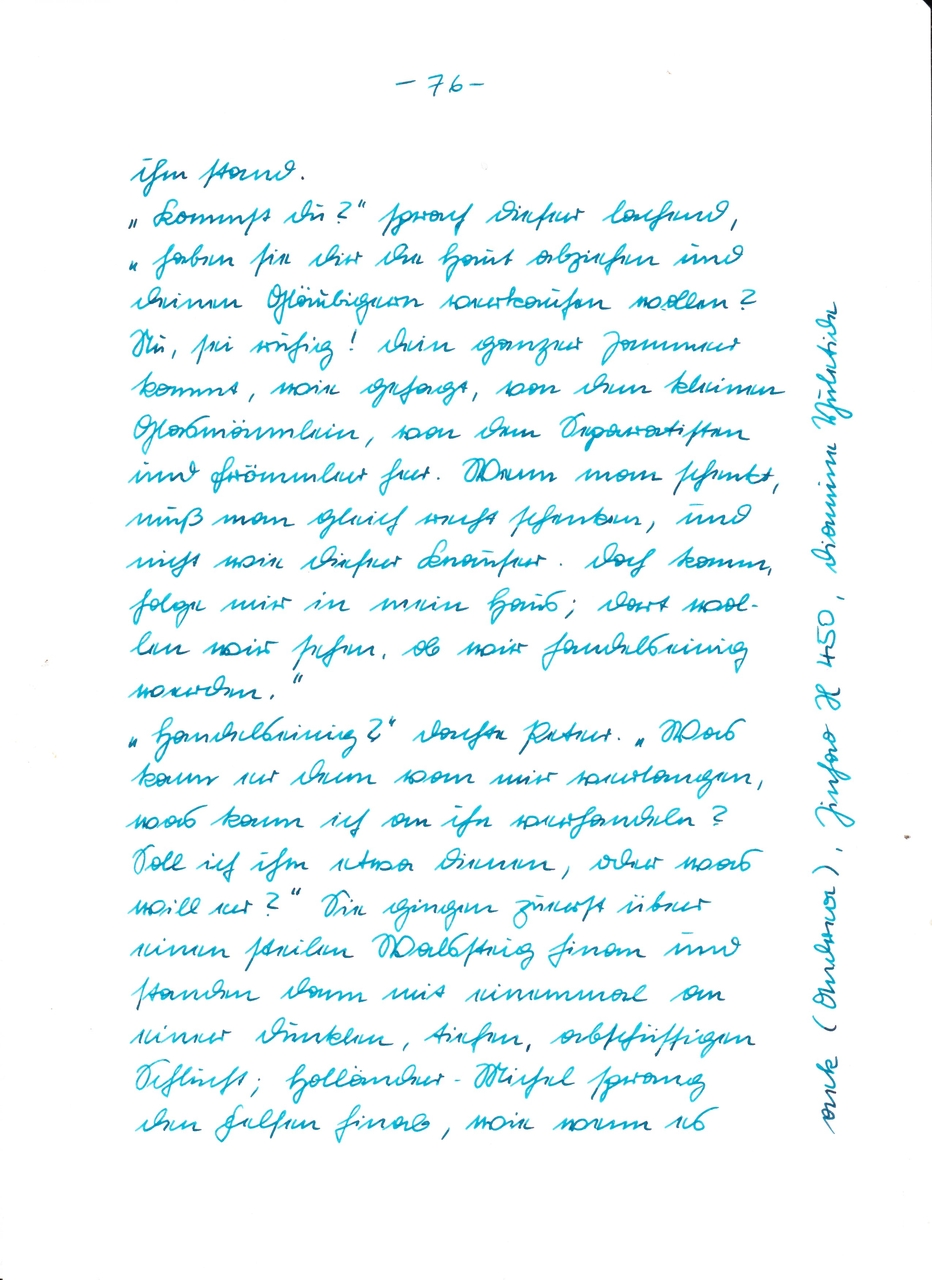 – 76 –
ihm stand.
„Kommst du?“ sprach dieser lachend,
„haben sie dir die Haut abziehen und
deinen Gläubigern verkaufen wollen?
Nu, sei ruhig! Dein ganzer Jammer
kommt, wie gesagt, von dem kleinen
Glasmännlein, von dem Separatisten
und Frömmler her. Wenn man schenkt,
muß man gleich recht schenken, und
nicht wie dieser Knauser. Doch komm,
folge mir in mein Haus; dort wol-
len wir sehen, ob wir handelseinig
werden.“
„Handelseinig?“ dachte Peter. „Was
kann er denn von mir verlangen,
was kann ich an ihn verhandeln?
Soll ich ihm etwa dienen, oder was
will er?“ Sie gingen zuerst über
einen steilen Waldsteig hinan und
standen dann mit einemmal an
einer dunklen, tiefen, abschüssigen
Schlucht; Holländer-Michel sprang
den Felsen hinab, wie wenn es
(Andorra), Jinhao X 450, Diamine